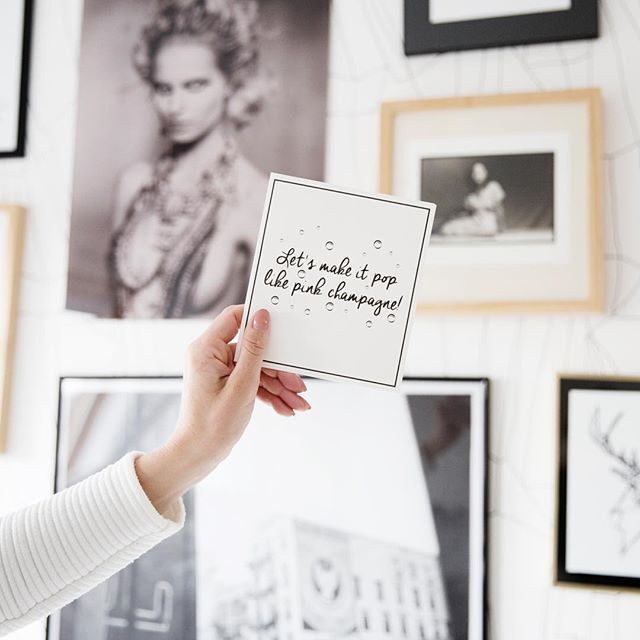 Let's make it pop
like pink champagne!